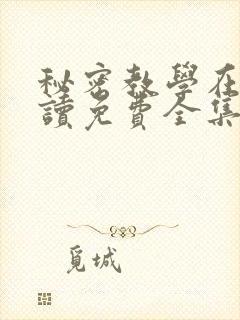 秘密教學在
讀免費全集
覓城